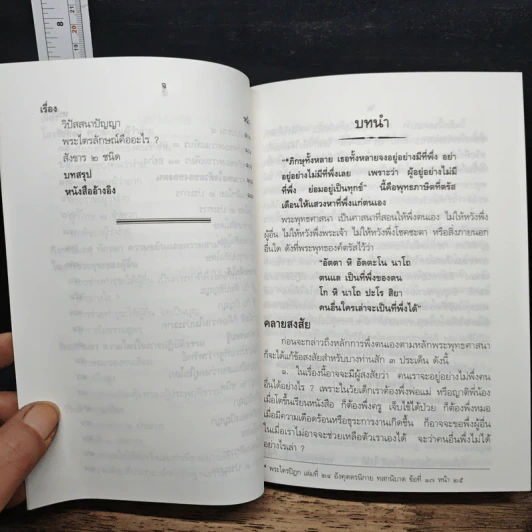 เรื่อง
วิปัสสนาปัญญา
พระไตรลักษณ์คืออะไร ?
สังขาร ๒ ชนิด
บทสรุป
หนังสืออ้างอิง
บทนำ
"*ภิกษุทั้งหลาย เธอทั้งหลายจงอยู่อย่างมีที่พึ่ง อย่า
อยู่อย่างไม่มีที่พึ่งเลย เพราะว่า ผู้อยู่อย่างไม่มี
ที่พึ่ง ย่อมอยู่เป็นทุกข์" นี้คือพุทธภาษิตที่ตรัส
เตือนให้แสวงหาที่พึ่งแก่ตนเอง
พระพุทธศาสนา เป็นศาสนาที่สอนให้พึ่งตนเอง ไม่ให้หวังพึ่ง
ผู้อื่น ไม่ให้หวังพึ่งพระเจ้า ไม่ให้หวังพึ่งโชคชะตา หรือสิ่งภายนอก
อื่นใด ดังที่พระพุทธองค์ตรัสไว้ว่า
"อัตตา หิ อัตตะโน นาโถ
ตนแล เป็นที่พึ่งของตน
โก หิ นาโถ ปะโร สิยา
คนอื่นใครเล่าจะเป็นที่พึ่งได้"
คลายสงสัย
ก่อนจะกล่าวถึงหลักการพึ่งตนเองตามหลักพระพุทธศาสนา
ก็จะได้แก้ข้อสงสัยสำหรับบางท่านสัก ๓ ประเด็น ดังนี้
๑. ในเรื่องนี้อาจจะมีผู้สงสัยว่า คนเราจะอยู่อย่างไม่พึ่งคน
อื่นได้อย่างไร ? เพราะในวัยเด็กเราต้องพึ่งพ่อแม่ หรือญาติพี่น้อง
เมื่อโตขึ้นเรียนหนังสือ ก็ต้องพึ่งครู เจ็บไข้ได้ป่วย ก็ต้องพึ่งหมอ
เมื่อมีความเดือดร้อนหรือธุระการงานเกิดขึ้น ก็อาจจะขอพึ่งผู้อื่น
ในเมื่อเราไม่อาจจะช่วยเหลือตัวเราเองได้ จะว่าคนอื่นพึ่งไม่ได้
อย่างไรเล่า ?
* พระไตรปิฎก เล่มที่ ๒๔ อังคุตตรนิกาย ทสกนิบาต ข้อที่ ๑๗ หน้า ๒๕